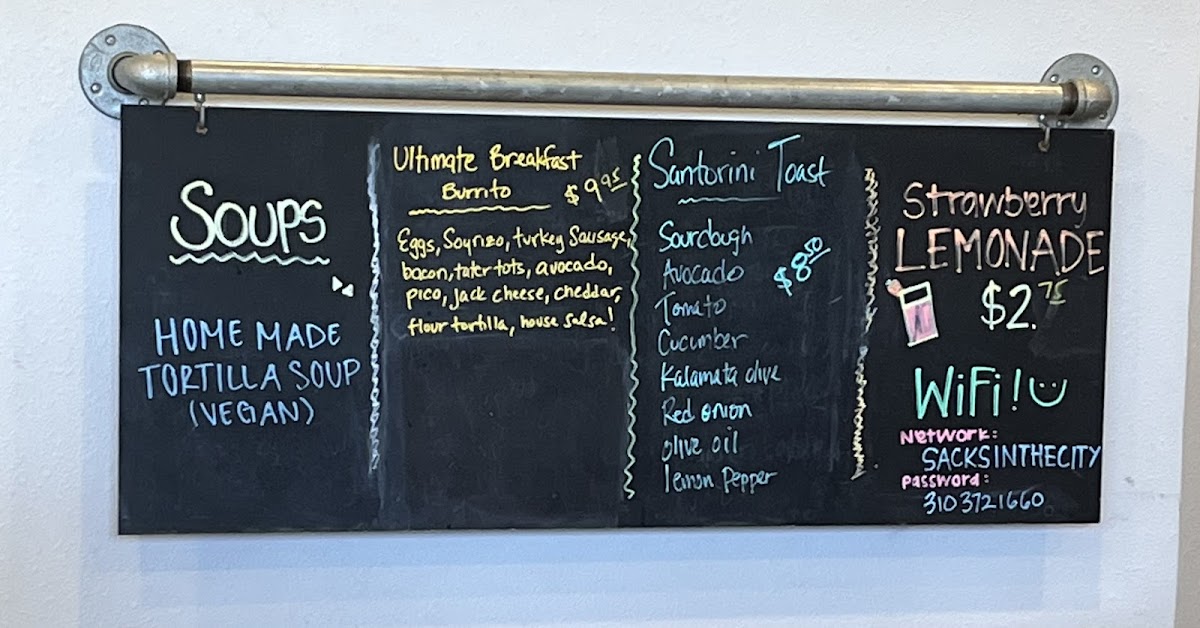 SOUPS
HOME MADE
TORTILLA SOUP
(VEGAN)
Ultimate Breakfast
Burrito $9.95
Eggs, Soyrizo, turkey sausage,
bacon, tater tots, avocado,
pico, jack cheese, cheddar,
flour tortilla, house salsa!
Santorini Toast
Sourdough
Avocado $8.50
Tomato
Cucumber
Kalamata olive
Red onion
olive oil
lemon pepper
Strawberry
LEMONADE
$2.75
WiFi!
Network:
SACKSINTHECITY
Password:
3103721660